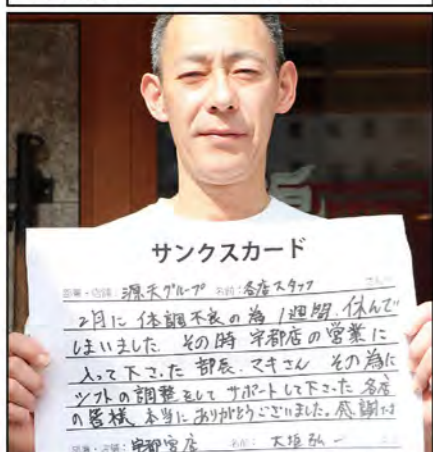 サンクスカード
部署・店舗：源天グループ 名前：各店スタッフ さんへ
2月に体調不良の為1週間、休んで
しまいました。その時 宇都店の営業に
入って下さった部長、マキさん その為に
シフトの調整をして サポートして下さった 各店
の皆様 本当にありがとうございました。感謝です
部署・店舗：宇都宮店 名前：大垣弘一